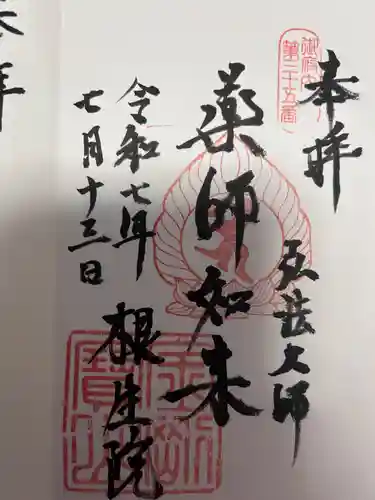 奉拝
御府内
第三十五番
弘法大師
薬師如来
令和七年
七月十三日
根生院